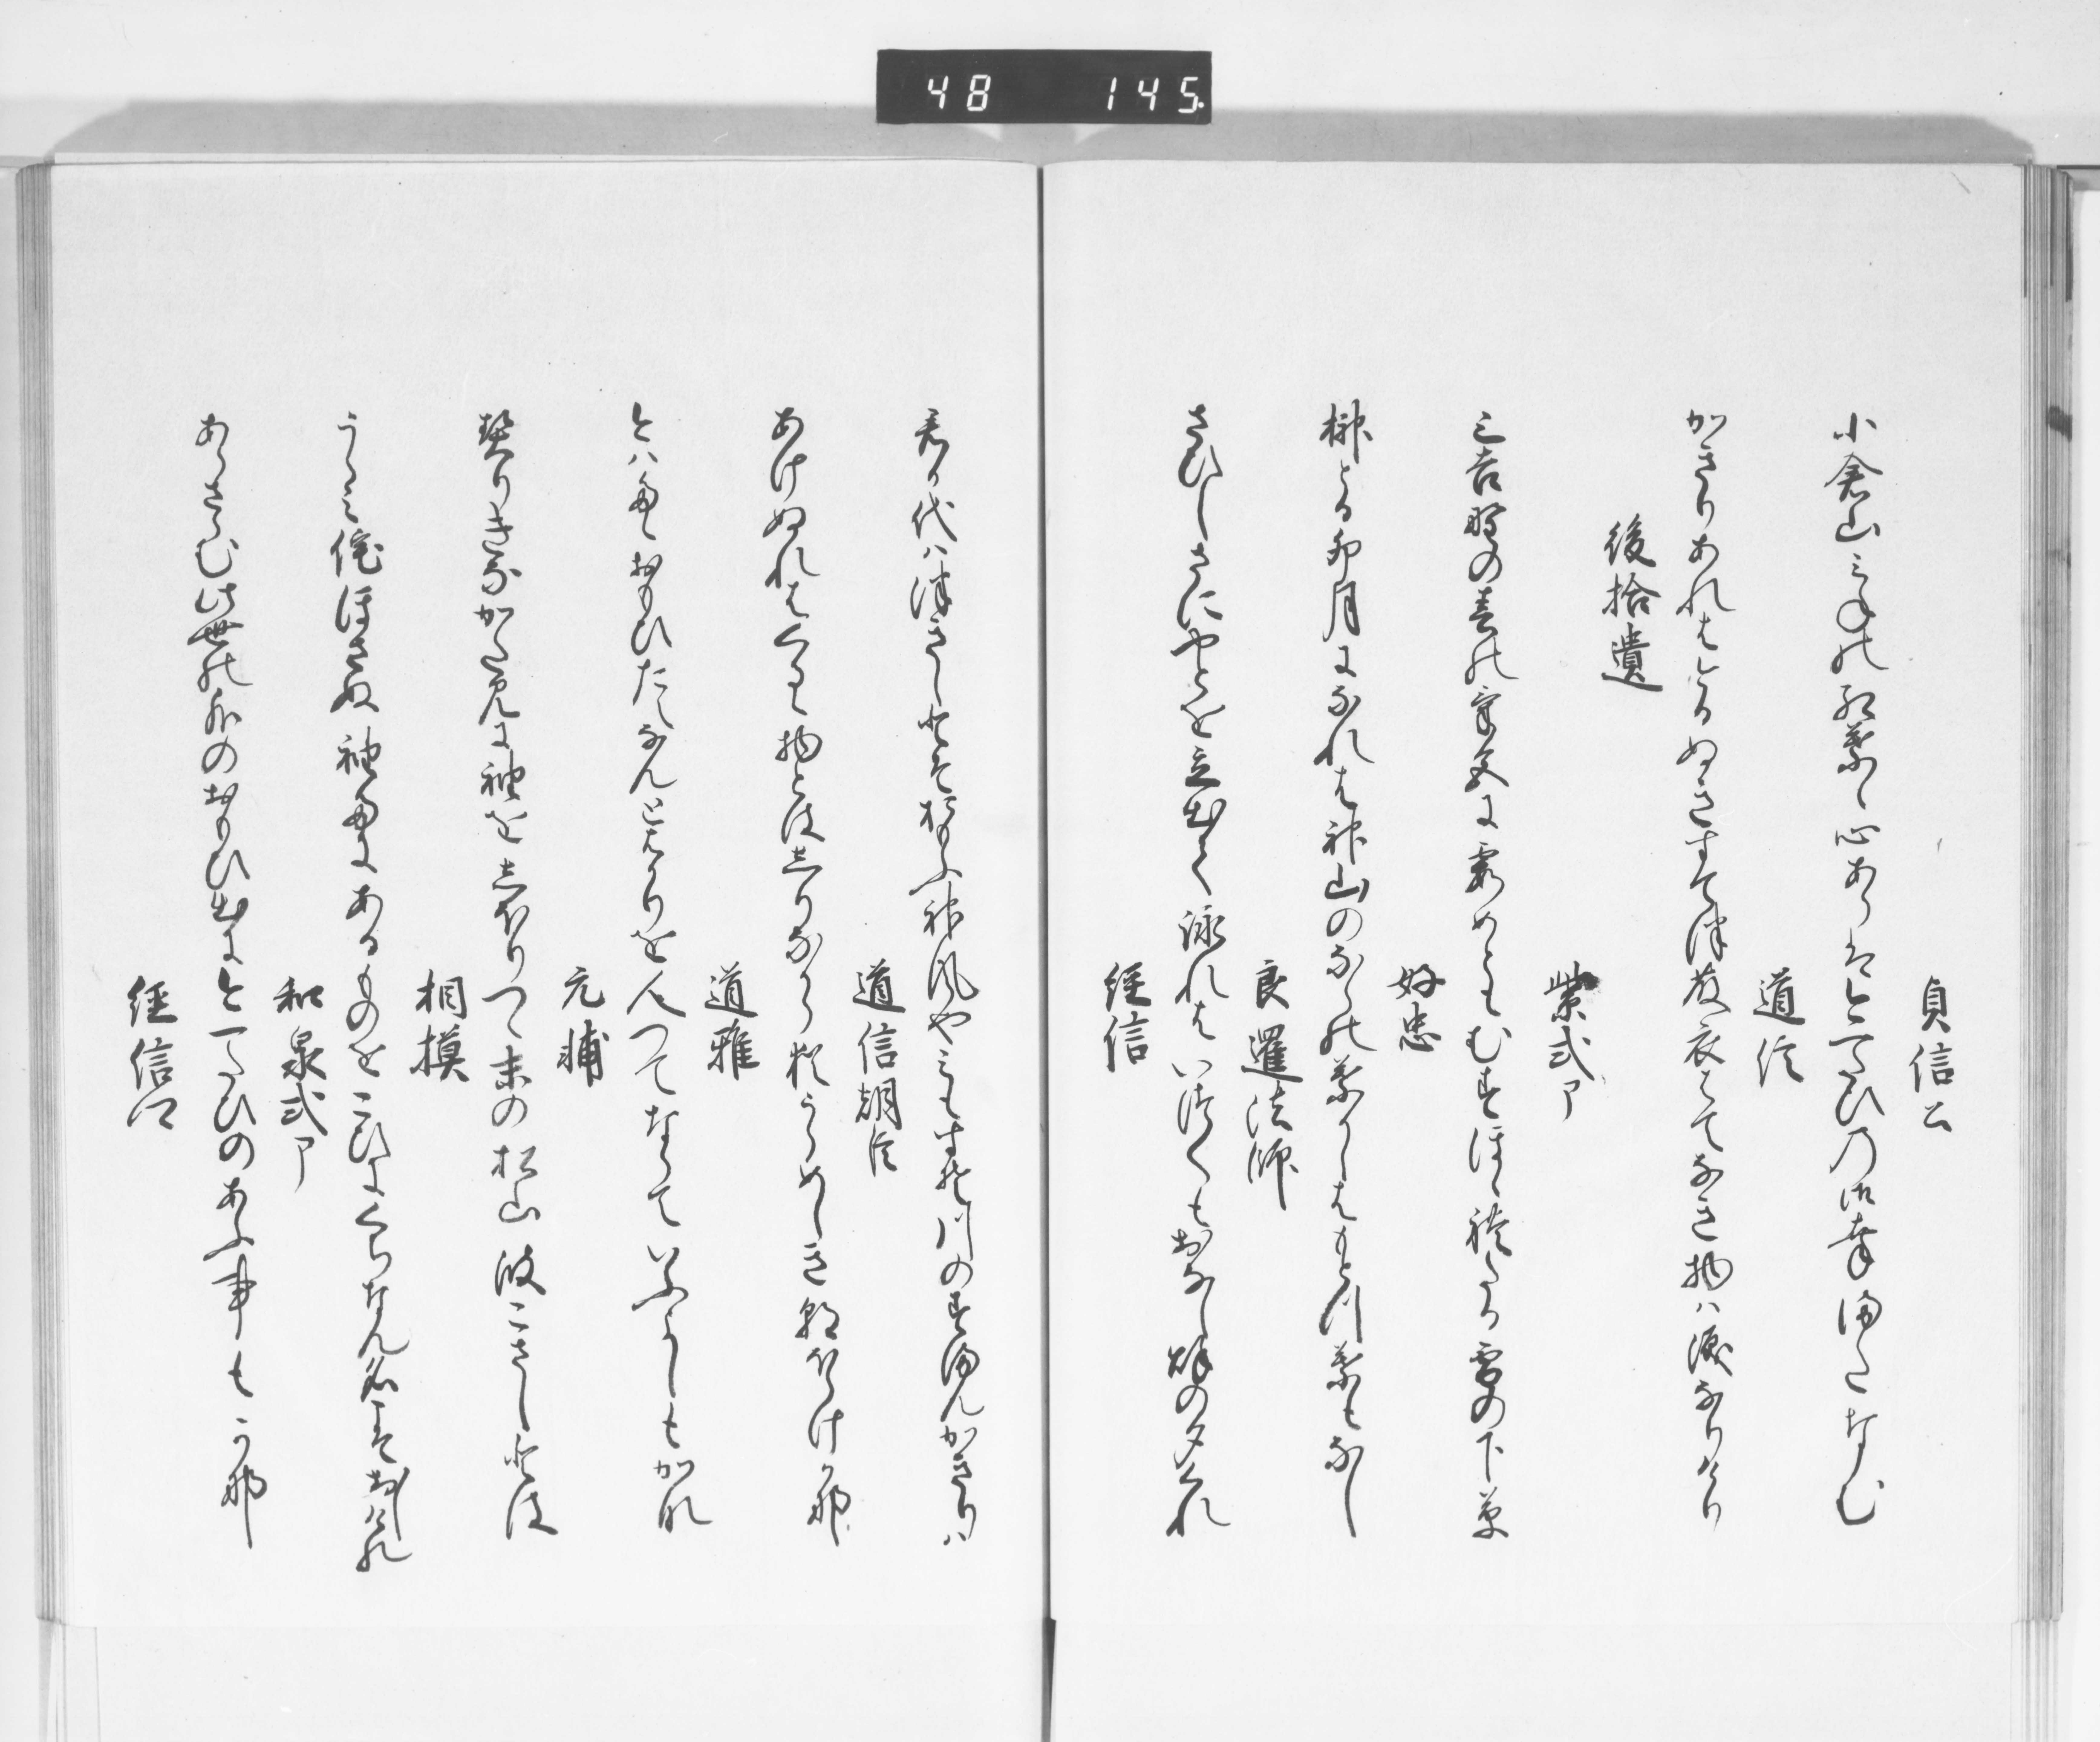 48 145
貞信公
小倉山みねの紅葉々心あらは今一たひの御幸またなむ
道信
かきりあれはけふぬきすてつ藤衣はてなき物は涙なりけり
後拾遺
紫式ア
三吉野の春の氣色に霞めともむすほゝれたる雪の下草
好忠
榊とる卯月になれは神山のならの葉かしはもとつ葉もなし
良暹法師
さひしさにやとを立出て詠れはいつくもおなし秋の夕くれ
経信
君か代はつきしとそおもふ神風やみもすそ川のすまんかきりは
道信朝臣
あけぬれはくるゝ物とはしりなから猶うらめしき朝ほらけかな
道雅
今はたゝおもひたえなんとはかりを人つてならていふよしもかな
元輔
契りきなかたみに袖をしほりつゝ末の松山波こさしとは
相摸
うらみ侘ほさぬ袖たにある物をこひにくちなん名こそおしけれ
和泉式ア
あらさらむ此世の外のおもひ出に今一たひのあふ事もかな
経信卿